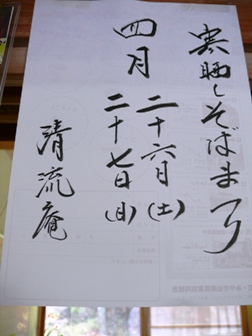 寒晒しそばまつり
四月
二十六日(土)
二十七日(日)
清流庵